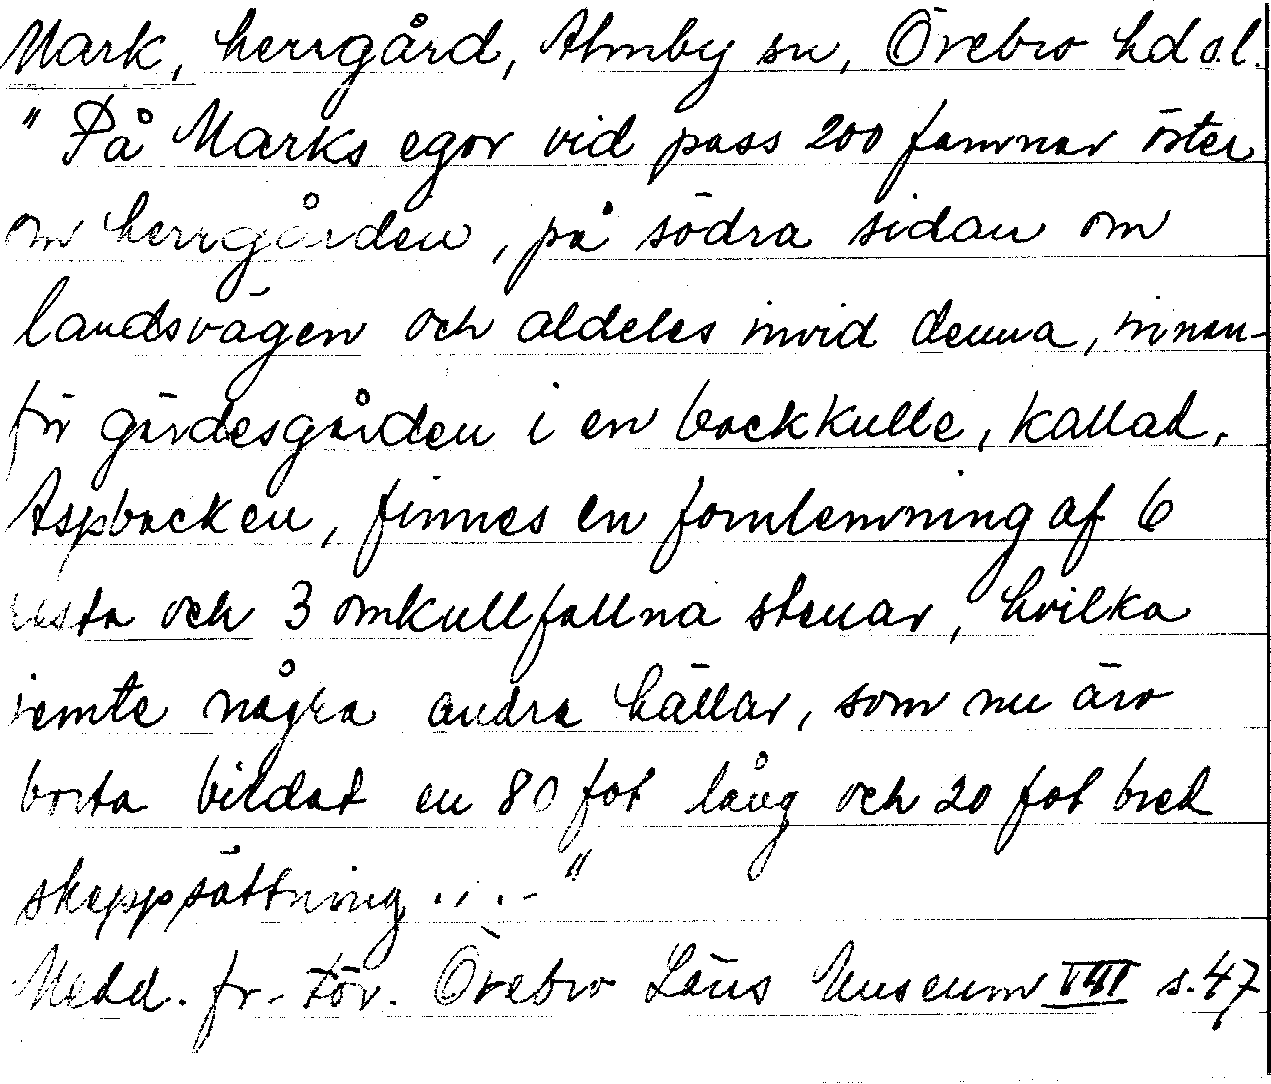 Mark, herrgård, Almby sn, Örebro hd o.l.
"På Marks egor vid pass 200 famnar öster
om herrgården, på södra sidan om
landsvägen och aldeles invid denna, innan-
för gärdesgården i en backkulle, kallad,
Aspbacken, finnes en fornlemning af 6
resta och 3 omkullfallna stenar, hvilka
jemte några andra hällar, som nu äro
borta bildat en 80 fot lång och 20 fot bred
skeppsättning...."
Medd. fr. För. Örebro Läns Museum VIII s. 47